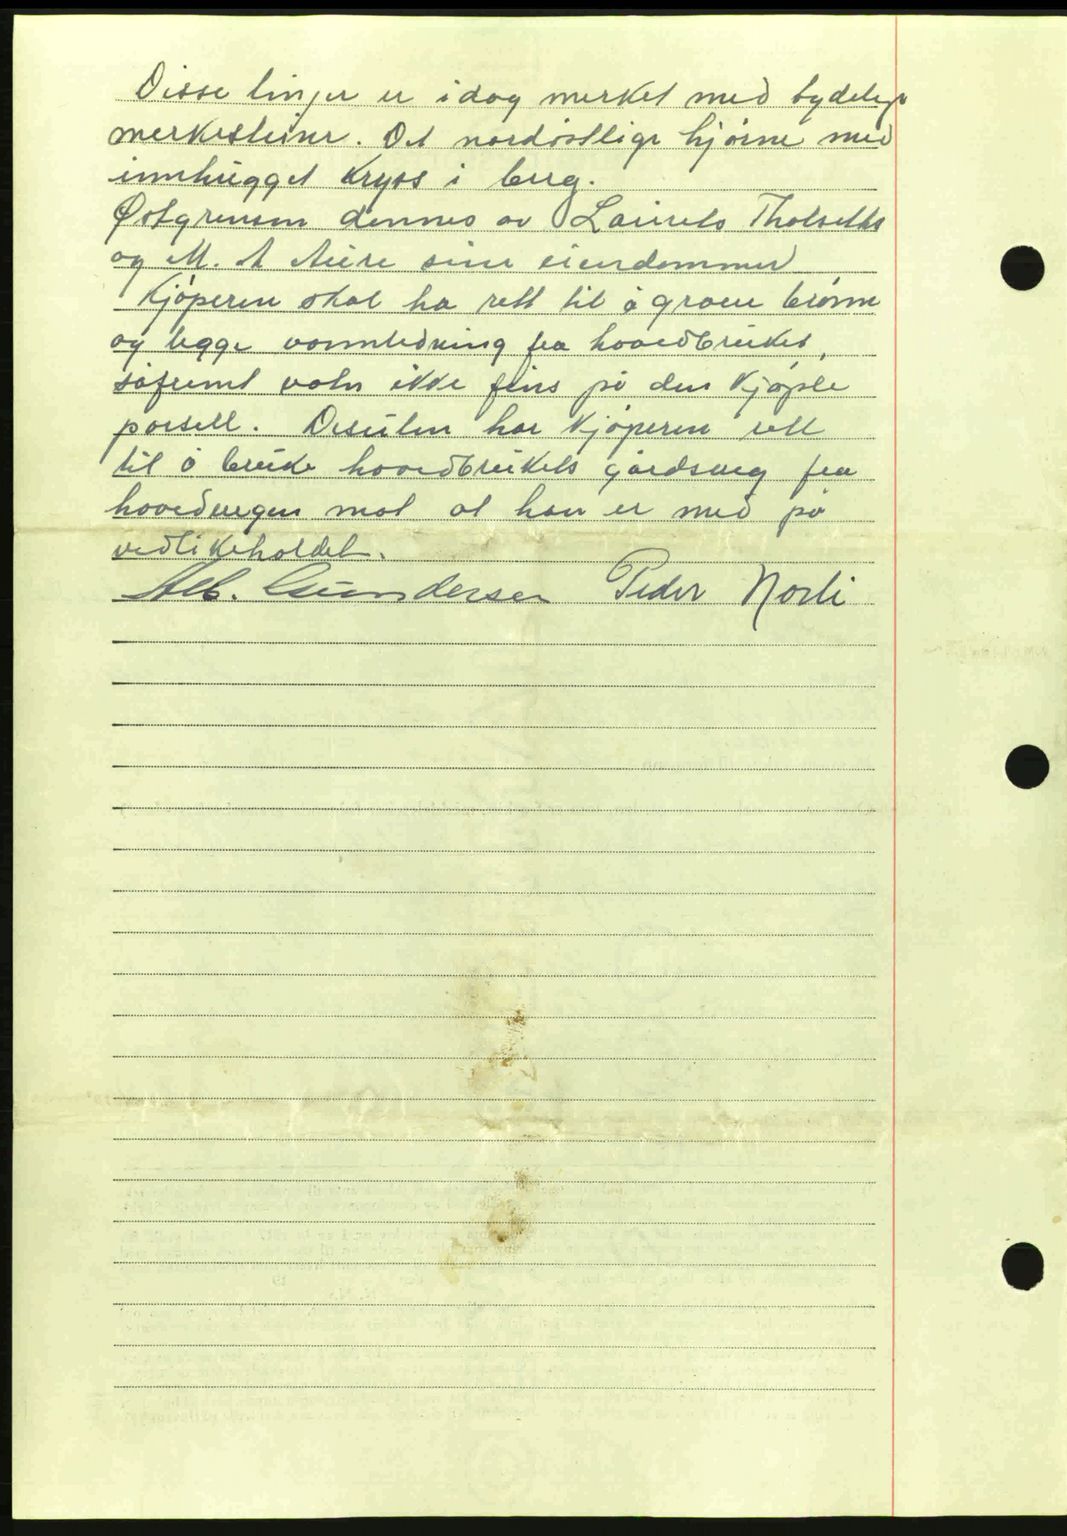 Disse linjer er idag merket med tydelige
merkesteiner. Det nordøstlige hjørne med
innhugget kryss i berg.
Østgrensen dannes av Laurits
og M. A. sine eiendommer
Kjøperen skal ha rett til å grave brønn
og legge vannledning fra hovedbruket,
såfremt vatn ikke fins på den kjøpte
parsell. Desuten har kjøperen rett
til å bruke hovedbrukets gårdsveg fra
hovedvegen mot at han er med på
vedlikeholdet.
Alb. Gundersen Peder Norli